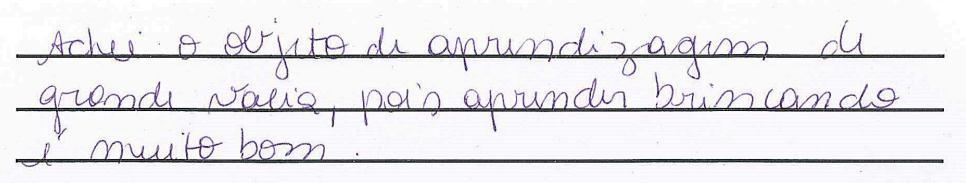 Achei o objeto de aprendizagem de
grande valia, pois aprender brincando
é muito bom.